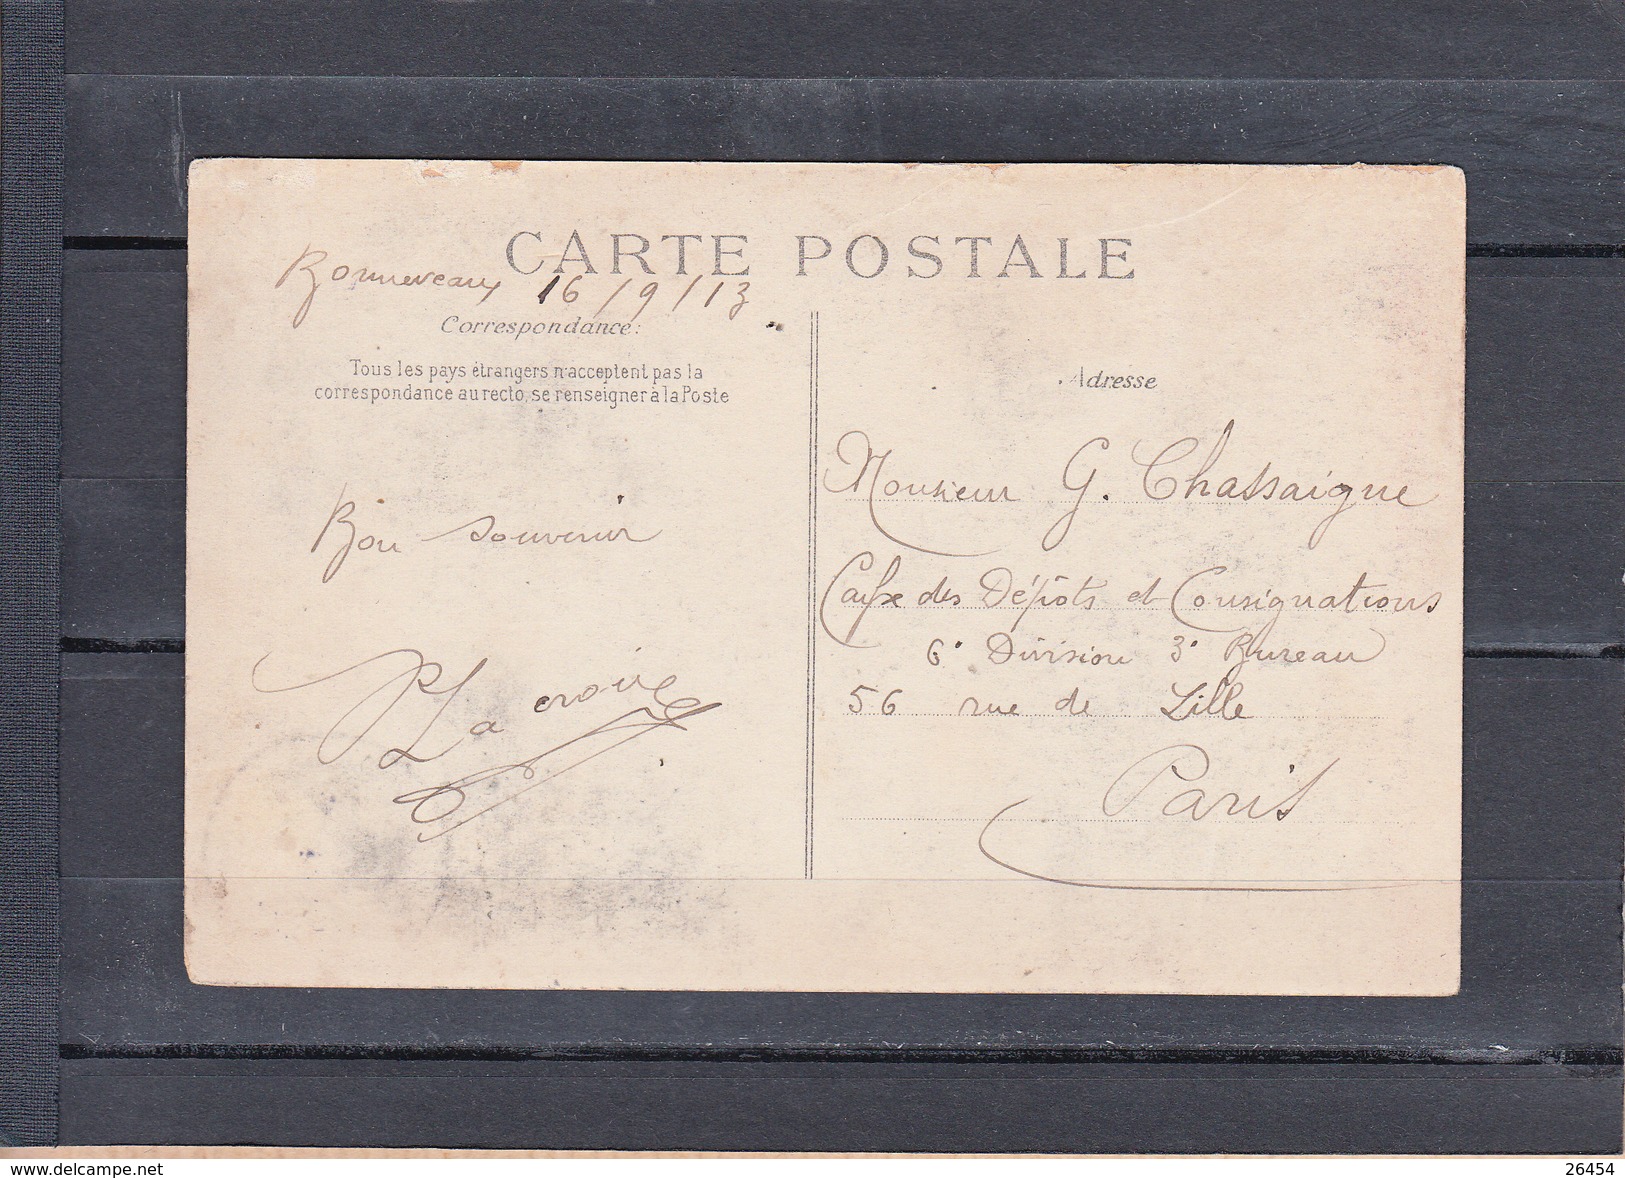 CARTE POSTALE
Bonneveaux 16/9/13
Correspondance:
Tous les pays étrangers n'acceptent pas la
correspondance au recto, se renseigner à la Poste
Bon souvenir
Adresse
Monsieur G. Chassaigne
Caisse des Dépôts et Consignations
6e Division 3e Bureau
56 rue de Lille
Paris
www.delcampe.net
26454